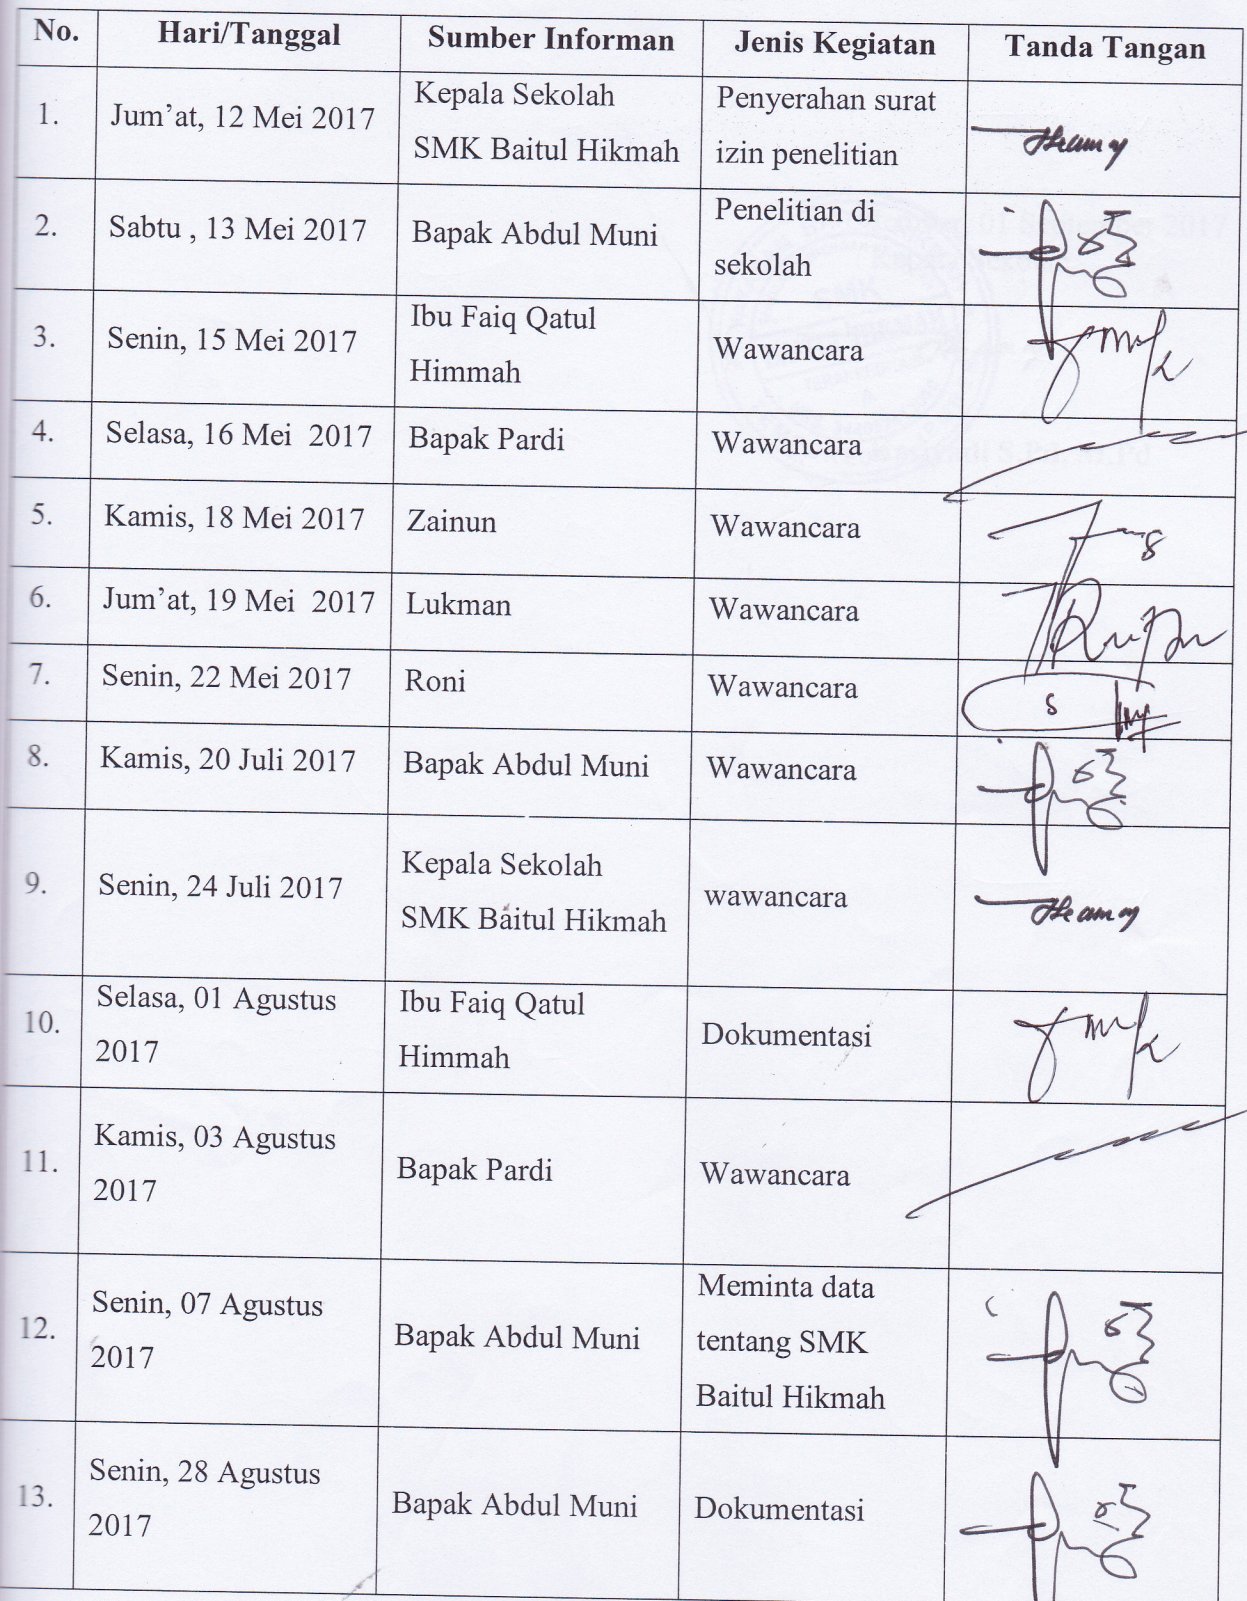 No. Hari/Tanggal Sumber Informan Jenis Kegiatan Tanda Tangan
1. Jum’at, 12 Mei 2017 Kepala Sekolah Penyerahan surat
SMK Baitul Hikmah izin penelitian
2. Sabtu , 13 Mei 2017 Bapak Abdul Muni Penelitian di
sekolah
3. Senin, 15 Mei 2017 Ibu Faiq Qatul Wawancara
Himmah
4. Selasa, 16 Mei 2017 Bapak Pardi Wawancara
5. Kamis, 18 Mei 2017 Zainun Wawancara
6. Jum’at, 19 Mei 2017 Lukman Wawancara
7. Senin, 22 Mei 2017 Roni Wawancara
8. Kamis, 20 Juli 2017 Bapak Abdul Muni Wawancara
9. Senin, 24 Juli 2017 Kepala Sekolah wawancara
SMK Baitul Hikmah
10. Selasa, 01 Agustus Ibu Faiq Qatul Dokumentasi
2017 Himmah
11. Kamis, 03 Agustus Bapak Pardi Wawancara
2017
12. Senin, 07 Agustus Bapak Abdul Muni Meminta data
2017 tentang SMK
Baitul Hikmah
13. Senin, 28 Agustus Bapak Abdul Muni Dokumentasi
2017